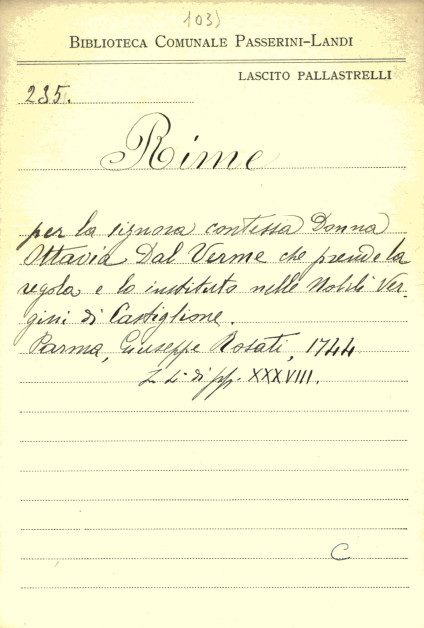 103)
BIBLIOTECA COMUNALE PASSERINI-LANDI
LASCITO PALLASTRELLI
235.
Rime
per la signora contessa Donna
Ottavia Dal Verme che prende la
regola e lo instituto nelle Nobili Ver-
gini di Castiglione.
Parma, Giuseppe Rosati, 1744
di pp. XXXVIII.
C